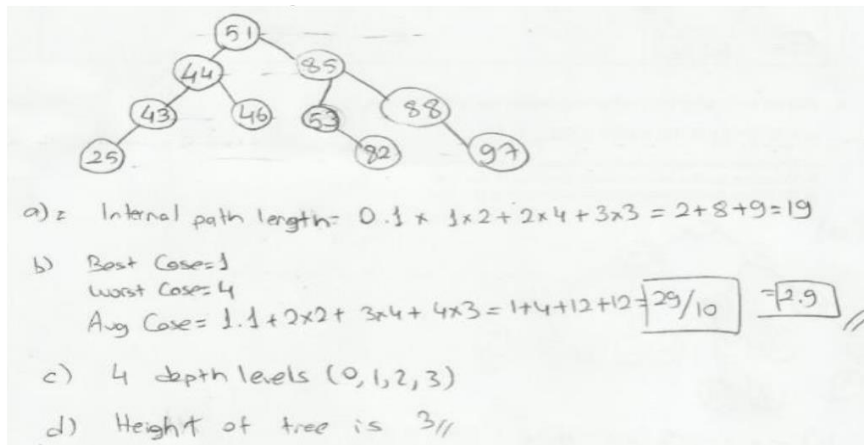 51
44 85
43 46 53 88
25 82 97
a) = Internal path length = 0.1 + 1x2 + 2x4 + 3x3 = 2+8+9=19
b) Best Case=1
Worst Case=4
Avg Case= 1.1 + 2x2 + 3x4 + 4x3 = 1+4+12+12=29/10 =2.9 //
c) 4 depth levels (0, 1, 2, 3)
d) Height of tree is 3//